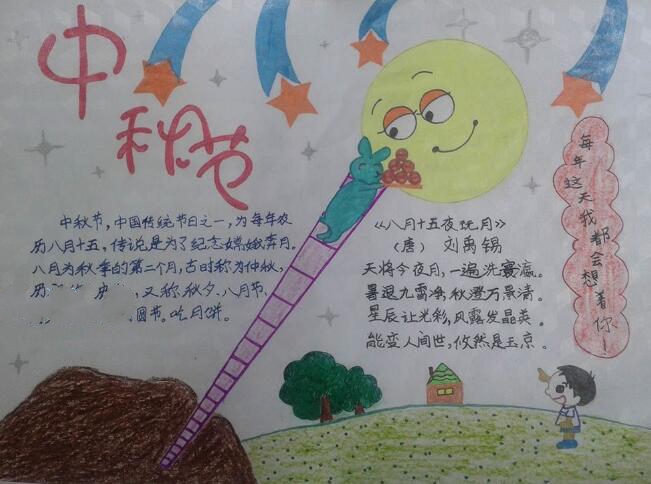 中
秋节
中秋节，中国传统节日之一，为每年农
历八月十五，传说是为了纪念嫦娥奔月。
八月为秋季的第二个月，古时称为仲秋，
历 又称，秋夕、八月节、
圆节。吃月饼。
《八月十五夜玩月》
（唐） 刘禹锡
天将今夜月，一遍洗寰瀛。
暑退九霄净，秋澄万景清。
星辰让光彩，风露发晶英。
能变人间世，攸然是玉京。
每年这天我都会想着你！